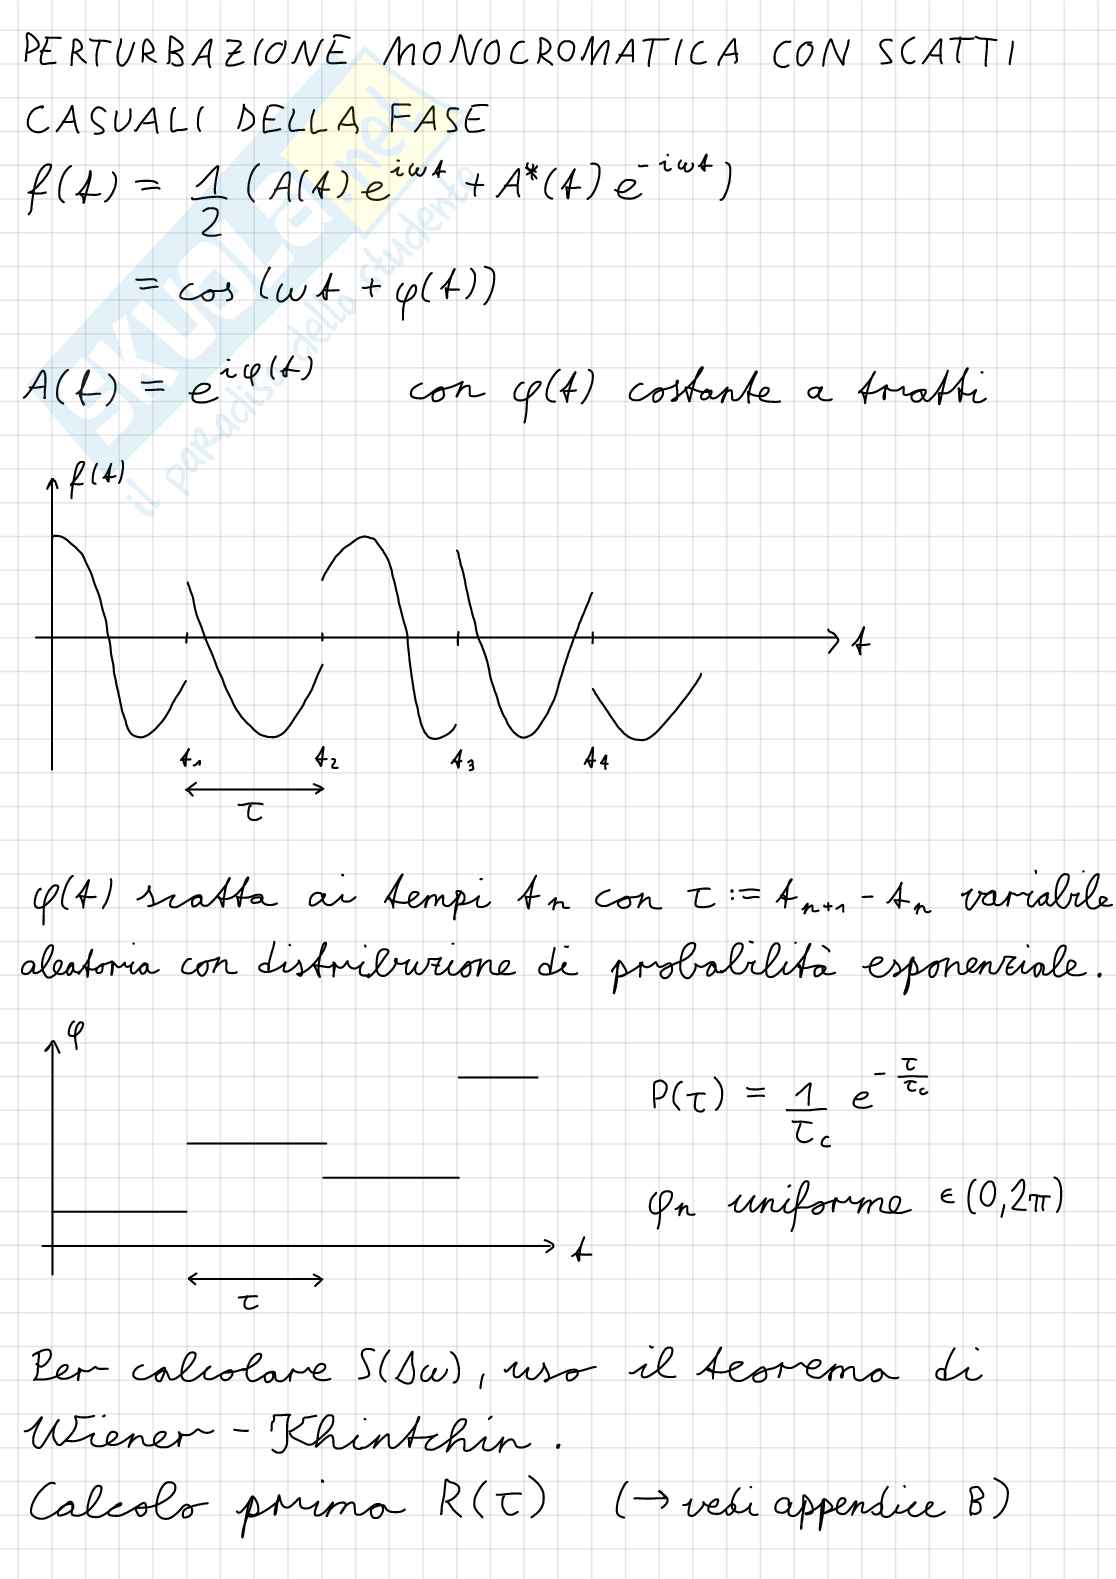 PERTURBAZIONE MONOCROMATICA CON SCATTI
CASUALI DELLA FASE
f(t) = 1/2 (A(t) e^{iωt} + A*(t) e^{-iωt})
= cos (ωt + φ(t))
A(t) = e^{iφ(t)} con φ(t) costante a tratti
f(t)
t
t₁ t₂ t₃ t₄
τ
φ(t) scatta ai tempi tₙ con τ := tₙ₊₁ - tₙ variabile
aleatoria con distribuzione di probabilità esponenziale.
φ
P(τ) = 1/τ_c e^{-τ/τ_c}
φₙ uniforme ∈ (0,2π)
t
τ
Per calcolare S(Δω), uso il teorema di
Wiener - Khintchin.
Calcolo prima R(τ) (→ vedi appendice B)
SKUOLA.net
il paradiso dello studente